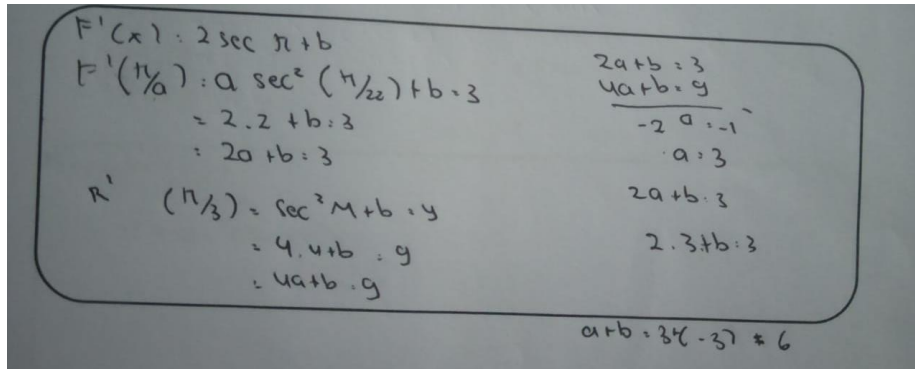 F'(x) : 2 sec π + b
F'(π/a) : a sec² (π/22) + b = 3
= 2.2 + b : 3
: 2a + b : 3
R' (π/3) = sec² M + b = y
= 4.4 + b : 9
: 4a + b : 9
2a + b : 3
4a + b = 9
-2 a : -1
a : 3
2a + b : 3
2.3 + b : 3
a + b = 3